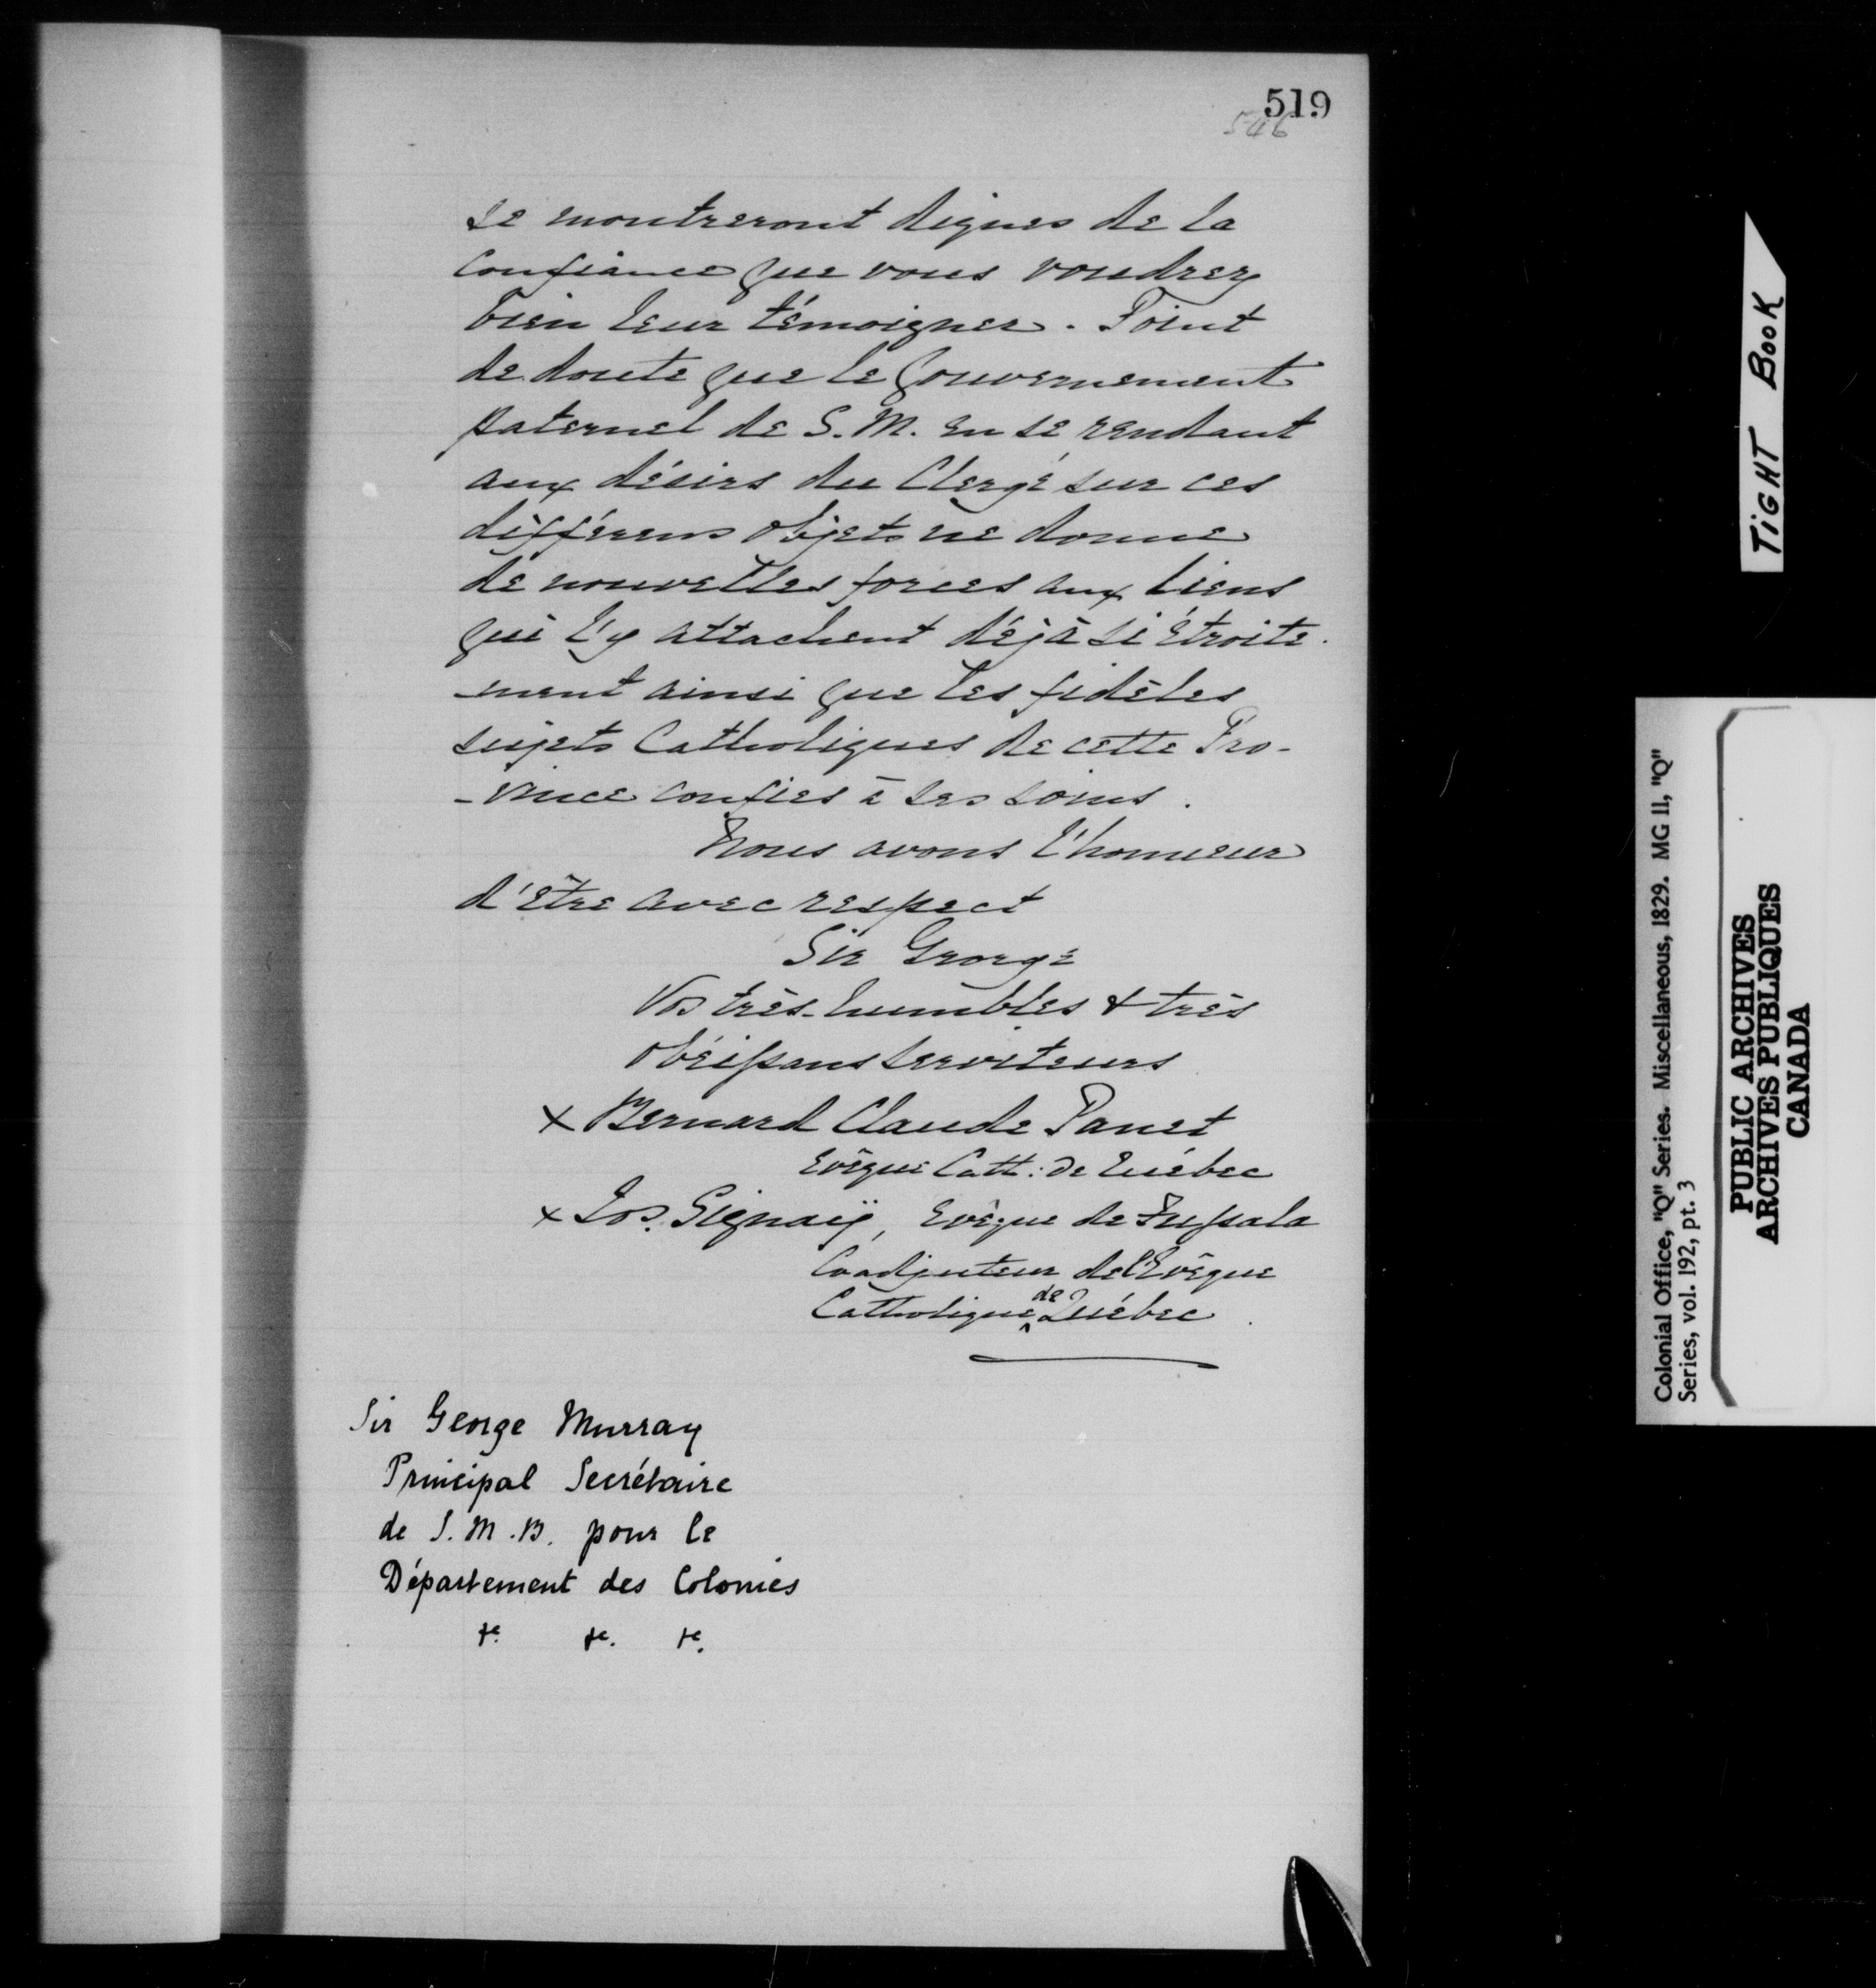 519
546
se montreront dignes de la
confiance que vous voudrez
bien leur témoigner. Point
de doute que le Gouvernement
paternel de S. M. en se rendant
aux désirs du Clergé sur ces
différens objets ne donne
de nouvelles forces aux liens
qui l'y attachent déjà si étroite-
-ment ainsi que les fidèles
sujets Catholiques de cette Pro-
-vince confiés à ses soins.
Nous avons l'honneur
d'être avec respect
Sir George
Vos très-humbles & très
obéissans serviteurs
x Bernard Claude Panet
Evêque Cath: de Québec
x Jos. Signaÿ, Evêque de Fussala
Coadjuteur de l'Evêque
Catholique de Québec.
Sir George Murray
Principal Secrétaire
de S. M. B. pour le
Département des Colonies
&c. &c. &c.
TIGHT BOOK
Colonial Office, "Q" Series. Miscellaneous, 1829. MG 11, "Q"
Series, vol. 192, pt. 3
PUBLIC ARCHIVES
ARCHIVES PUBLIQUES
CANADA